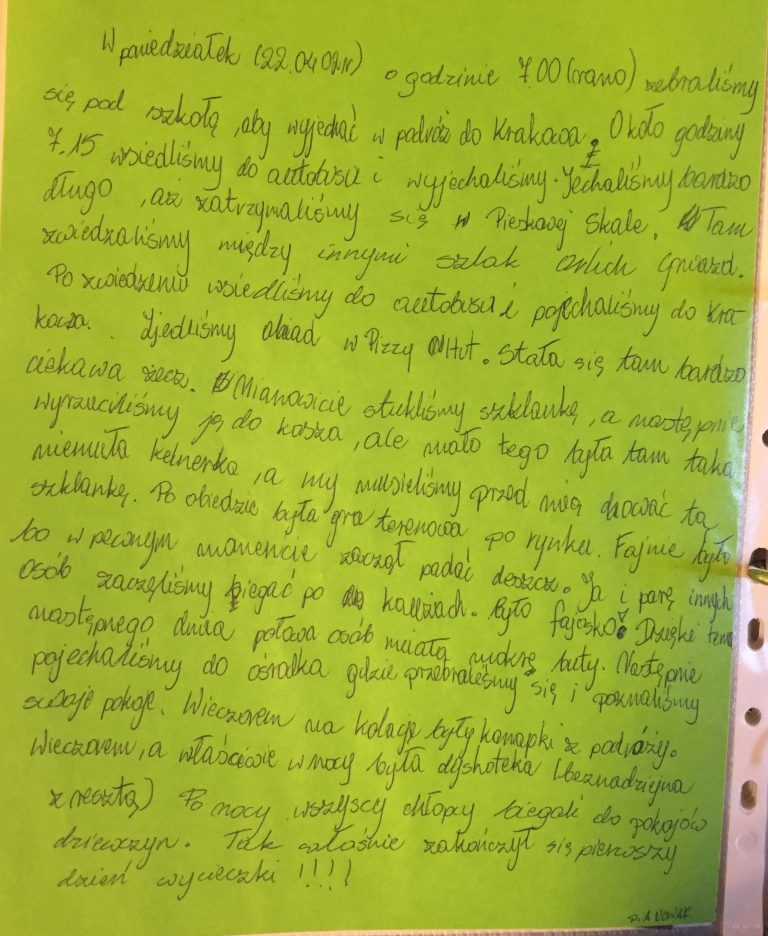 W poniedziałek (22.04.02.r) o godzinie 7.00 (rano) zebraliśmy
się pod szkołą, aby wyjechać w podróż do Krakowa. Około godziny
7.15 wsiedliśmy do autobusu i wyjechaliśmy. Jechaliśmy bardzo
długo, aż zatrzymaliśmy się w Pieskowej Skale. Tam
zwiedzaliśmy między innymi szlak orlich gniazd.
Po zwiedzeniu wsiedliśmy do autobusu i pojechaliśmy do Kra-
kowa. Zjedliśmy obiad w Pizzy Hut. Stała się tam bardzo
ciekawa rzecz. Mianowicie stukliśmy szklankę, a następnie
wyrzuciliśmy ją do kosza, ale mało tego była tam taka
niemiła kelnerka, a my musieliśmy przed nią chować tą
szklankę. Po obiedzie była gra terenowa po rynku. Fajnie było
bo w pewnym momencie zaczął padać deszcz. Ja i parę innych
osób zaczęliśmy biegać po kałużach. Było fajosko! Dzięki temu
następnego dnia połowa osób miała mokre buty. Następnie
pojechaliśmy do ośrodka gdzie przebraliśmy się i poznaliśmy
swoje pokoje. Wieczorem na kolację były kanapki z podróży.
Wieczorem, a właściwie w nocy była dyskoteka (beznadziejna
z resztą) Po nocy wszyscy chłopcy biegali do pokojów
dziewczyn. Tak właśnie zakończył się pierwszy
dzień wycieczki !!!!